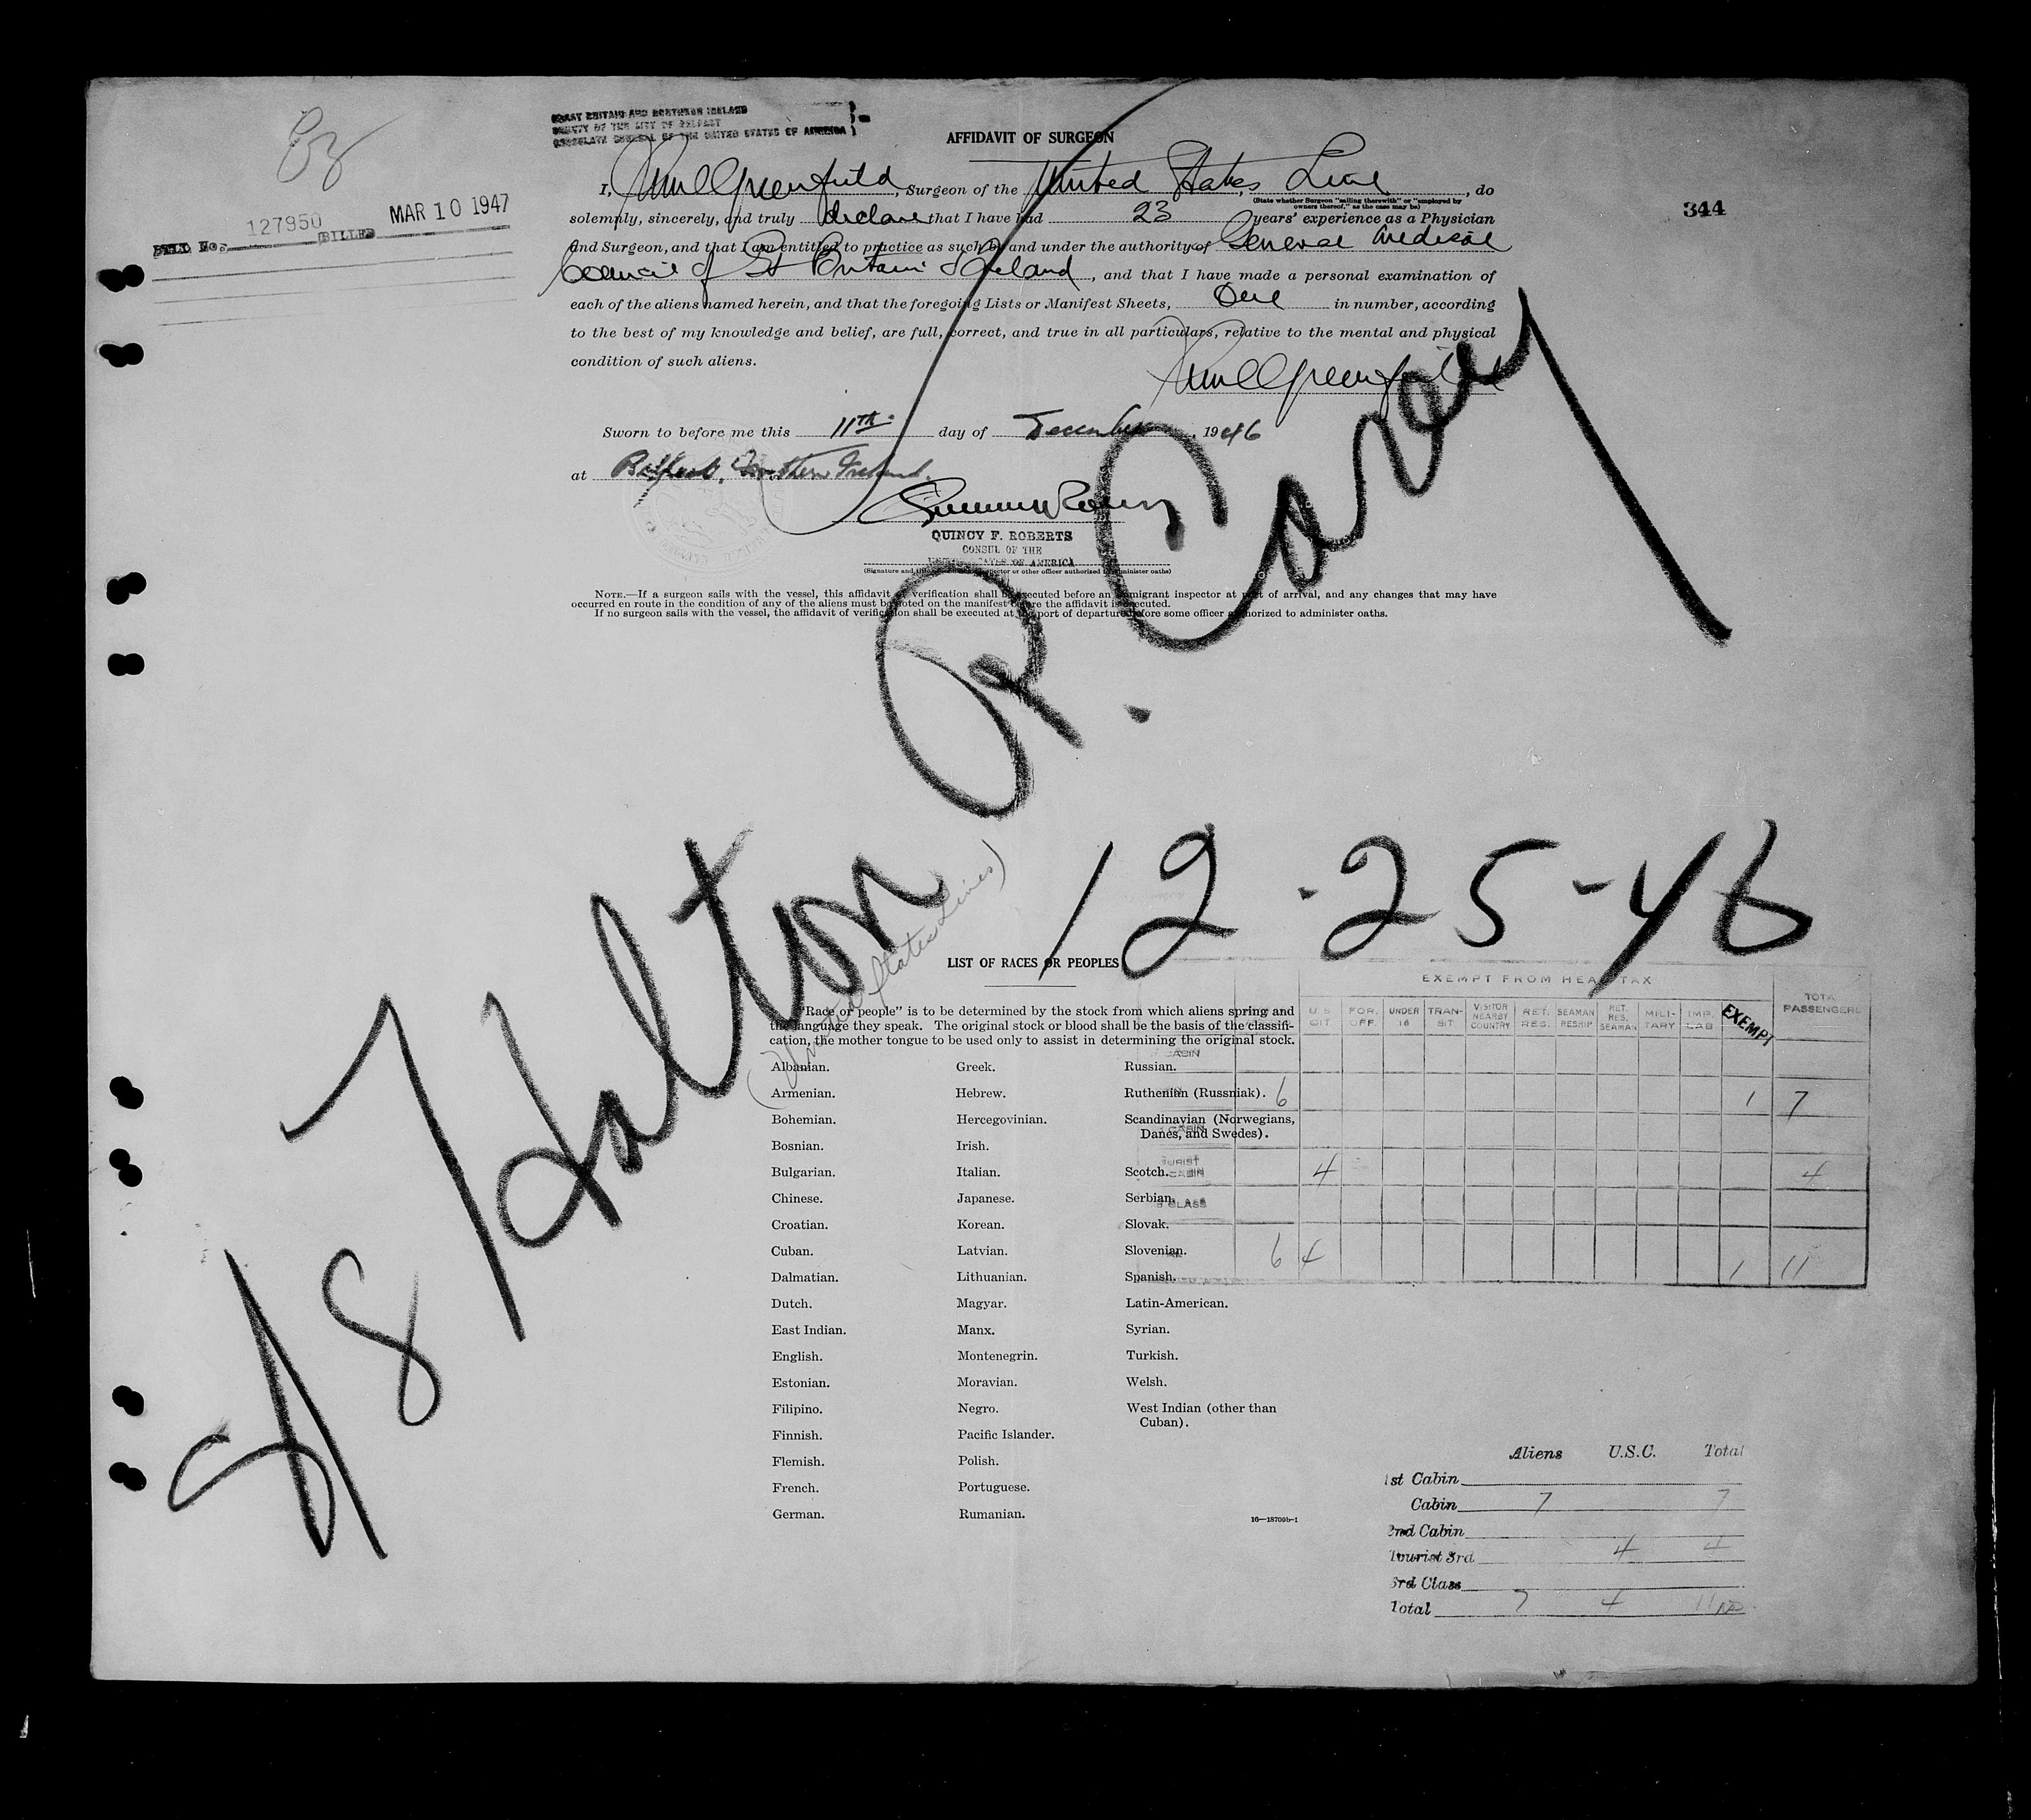 GREAT BRITAIN AND NORTHERN IRELAND
COUNTY OF THE CITY OF BELFAST
CONSULATE GENERAL OF THE UNITED STATES OF AMERICA
AFFIDAVIT OF SURGEON
344
127950 MAR 10 1947
BILL No. BILLED
I, Greenfield, Surgeon of the United States Line, do
(State whether Surgeon "sailing therewith" or "employed by
owners thereof," as the case may be)
solemnly, sincerely, and truly declare that I have had 23 years' experience as a Physician
and Surgeon, and that I am entitled to practice as such by and under the authority of General Medical
Council of Gt Britain & Ireland, and that I have made a personal examination of
each of the aliens named herein, and that the foregoing Lists or Manifest Sheets, One in number, according
to the best of my knowledge and belief, are full, correct, and true in all particulars, relative to the mental and physical
condition of such aliens.
Greenfield
Sworn to before me this 11th day of December, 1946
at Belfast, Northern Ireland.
QUINCY F. ROBERTS
CONSUL OF THE
UNITED STATES OF AMERICA
NOTE.—If a surgeon sails with the vessel, this affidavit of verification shall be executed before an immigrant inspector at port of arrival, and any changes that may have
occurred en route in the condition of any of the aliens must be noted on the manifest before the affidavit is executed.
If no surgeon sails with the vessel, the affidavit of verification shall be executed at the port of departure before some officer authorized to administer oaths.
S/S Halton R. Carey
(United States Lines)
12-25-46
LIST OF RACES OR PEOPLES
"Race or people" is to be determined by the stock from which aliens spring and
the language they speak. The original stock or blood shall be the basis of the classifi-
cation, the mother tongue to be used only to assist in determining the original stock.
Albanian. Greek. Russian.
Armenian. Hebrew. Ruthenian (Russniak).
Bohemian. Hercegovinian. Scandinavian (Norwegians,
Danes, and Swedes).
Bosnian. Irish.
Bulgarian. Italian. Scotch.
Chinese. Japanese. Serbian.
Croatian. Korean. Slovak.
Cuban. Latvian. Slovenian.
Dalmatian. Lithuanian. Spanish.
Dutch. Magyar. Latin-American.
East Indian. Manx. Syrian.
English. Montenegrin. Turkish.
Estonian. Moravian. Welsh.
Filipino. Negro. West Indian (other than
Cuban).
Finnish. Pacific Islander.
Flemish. Polish.
French. Portuguese.
German. Rumanian.
16—18700b-1
EXEMPT FROM HEAD TAX
U.S. CIT. FOR. OFF. UNDER 16 TRAN-SIT VISITOR NEARBY COUNTRY RET. RES. SEAMAN RESHIP RET. RES. SEAMAN MILI-TARY IMP. LAB EXEMPT TOTAL PASSENGERS
CABIN
6 1 7
CABIN
TOURIST CABIN 4 4
CLASS
6 4 1 11
Aliens U.S.C. Total
1st Cabin
Cabin 7 7
2nd Cabin
Tourist 3rd 4 4
3rd Class
Total 7 4 11